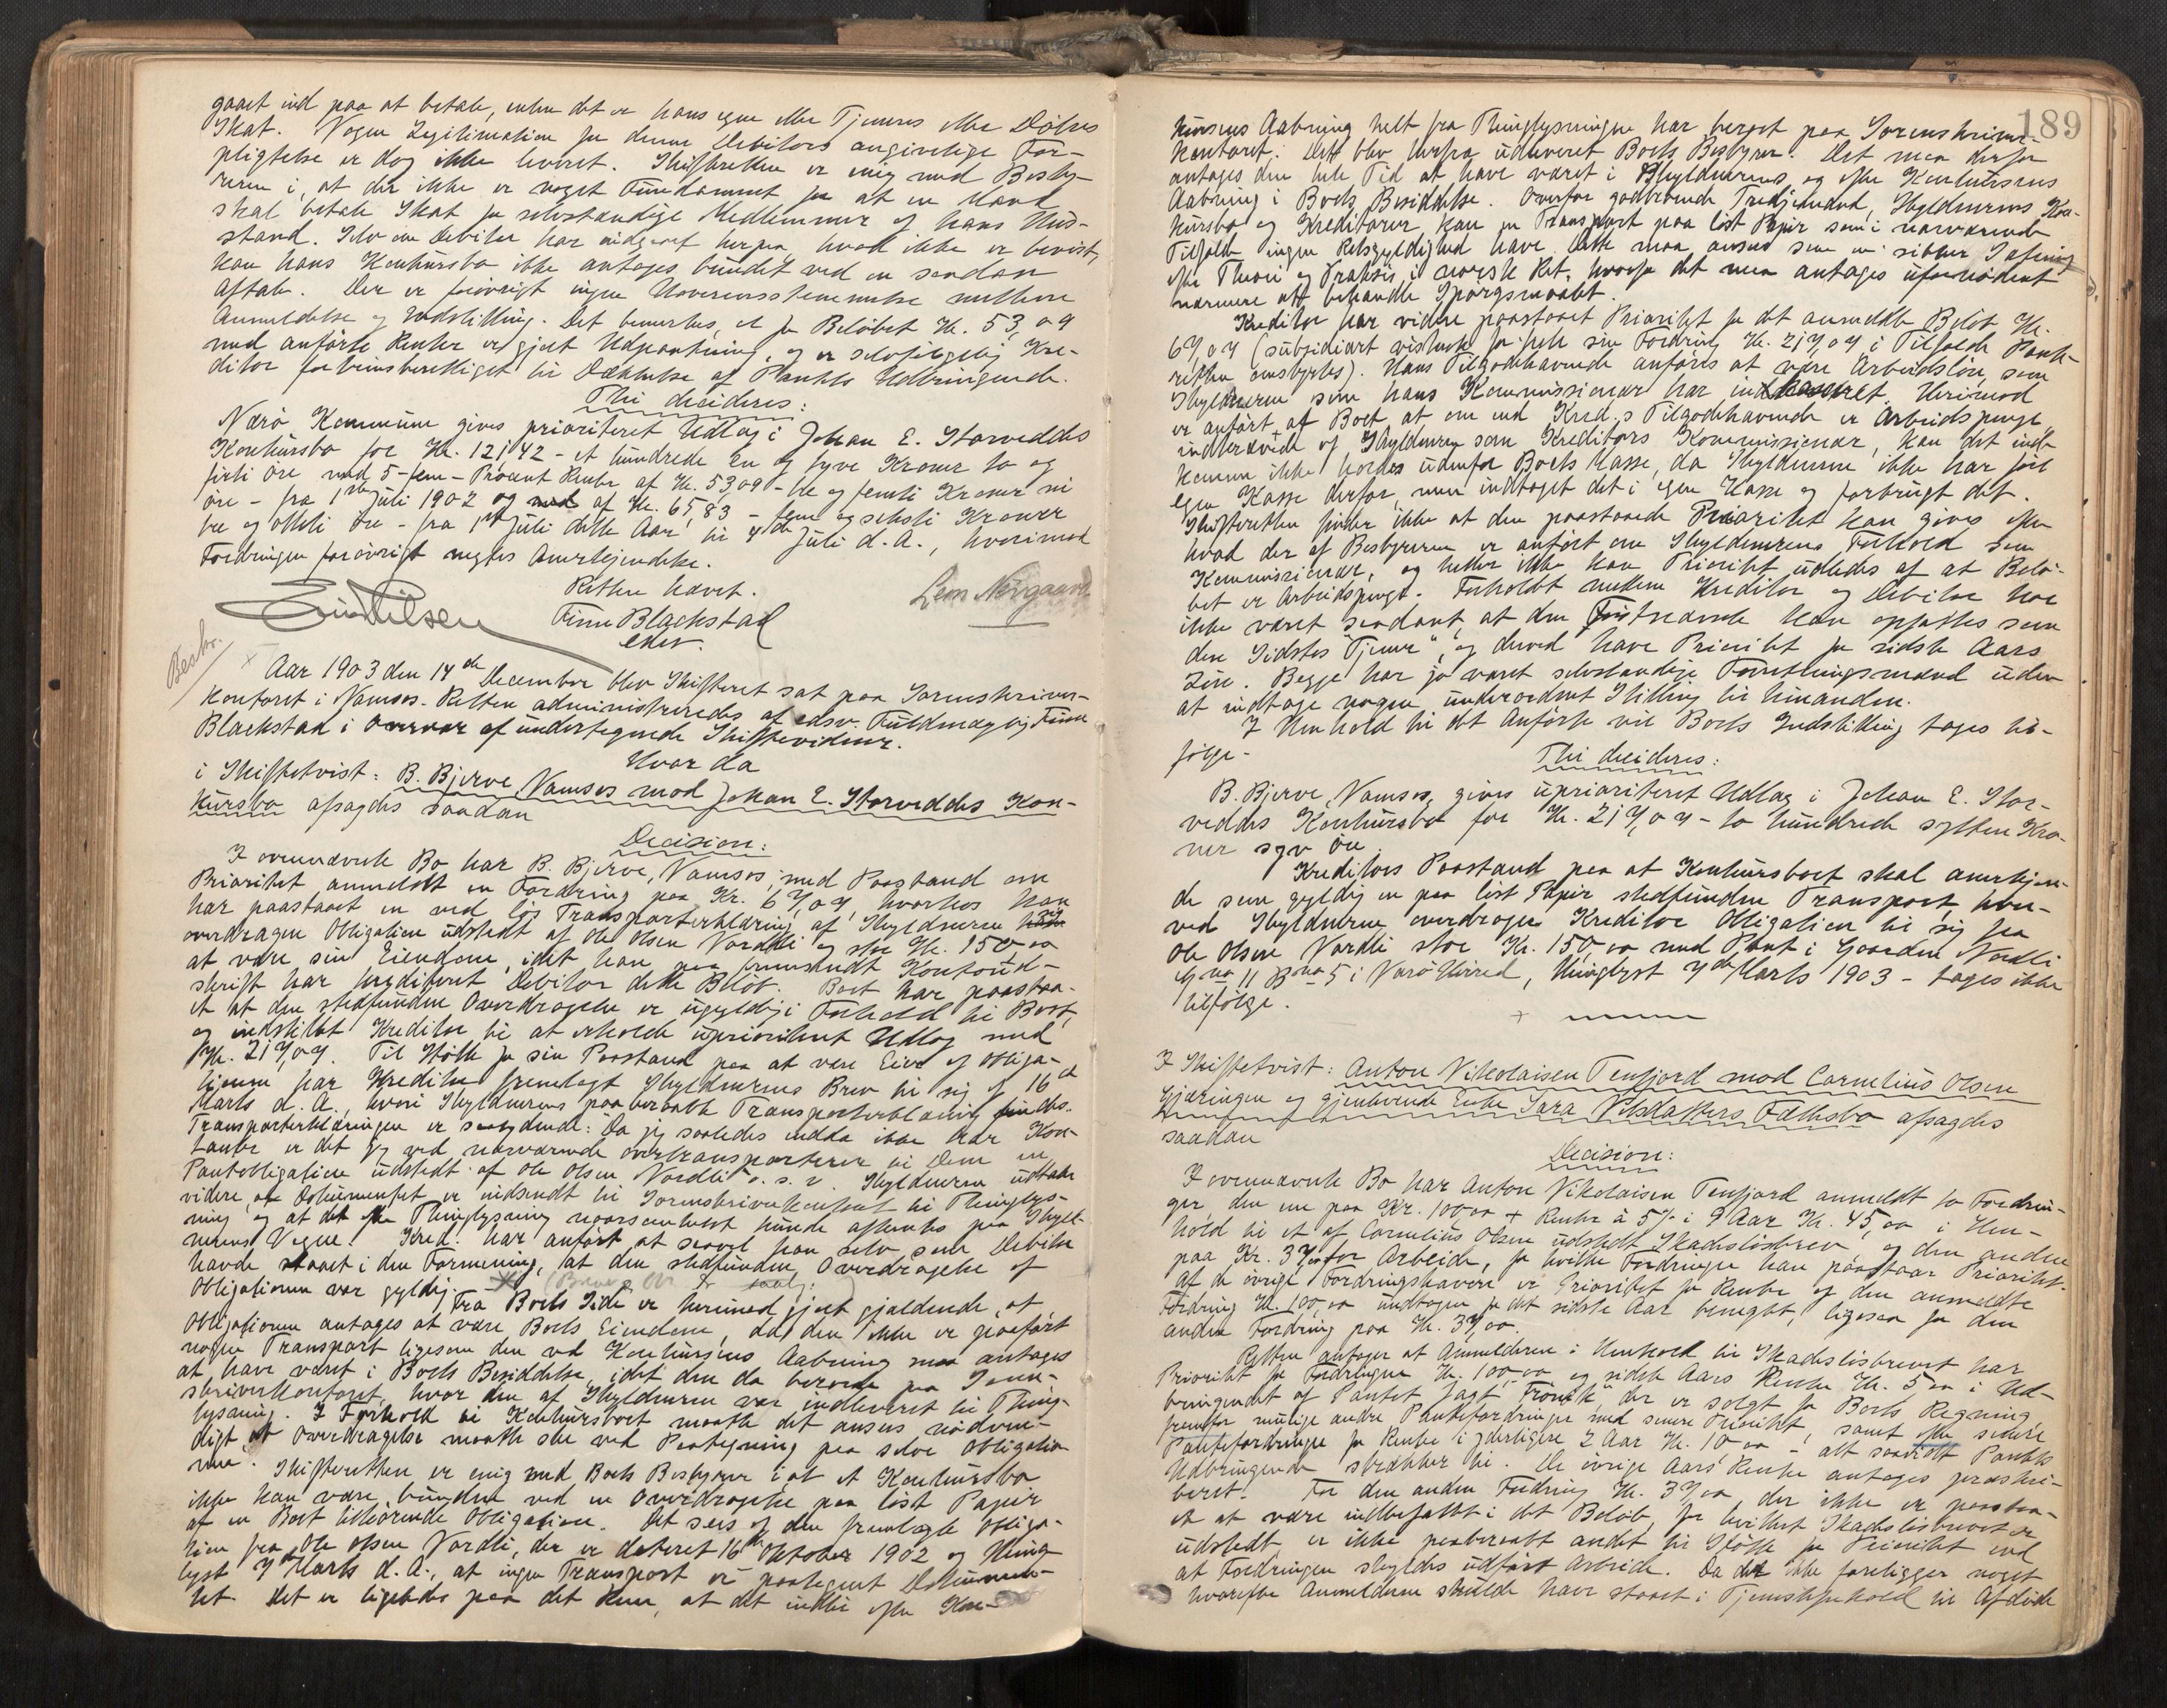 gaaet ind paa at betale, enten det er hans egen eller Tjeneres eller Døtres
Skat. Nogen Legitimation for denne Debitors angivelige For-
pligtelse er dog ikke leveret. Skifteretten er enig med Besty-
reren i, at der ikke er noget Fundament for at en Mand
skal betale Skat for selvstændige Medlemmer af hans Hus-
stand. Selv om Debitor har indgaaet herpaa, hvad ikke er bevist,
kan hans Konkursbo ikke antages bundet ved en saadan
Aftale. Der er forøvrigt ingen Uoverensstemmelse mellem
Anmeldelse og Indstilling. Det bemerkes, at for Beløbet Kr. 53,09
med anførte Renter er gjort Udpantning, og er selvfølgelig Kre-
ditor forbrinsberettiget til Dækkelse af Pantets Udbringende.
Thi decideres:
Nærø Kommune gives prioriteret Udlag i Johan E. Storveddes
Konkursbo for Kr. 121,42 - et hundrede en og tyve Kroner to og
førti Øre med 5 - fem - Procent Rente af Kr. 53,09 - tre og femti Kroner ni
Øre - fra 1ste Juli 1902 og af Kr. 65,83 - fem og seksti Kroner
tre og otteti Øre - fra 1ste Juli dette Aar til 4de Juli d. A., hvorimod
Fordringen forøvrigt negtes Anerkjendelse.
Retten hævet.
Finn Blackstad
edsv.
Leon Nørgaard
Bestbr.
Aar 1903 den 14de December blev Skifteret sat paa Sorenskriver-
kontoret i Namsos. Retten administreredes af edsv. Fuldmægtig Finn
Blackstad i Overvær af undertegnede Skiftevidner.
Hvor da
i Skiftetvist: B. Bjerve, Namsos mod Johan E. Storveddes Kon-
kursbo afsagdes saadan
Decision:
I ovennævnte Bo har B. Bjerve, Namsos, med Paastand om
Prioritet anmeldt en Fordring paa Kr. 67,04, hvorhos han
har paastaaet en ved løs Transporterklæring af Skyldneren
overdragen Obligation udstedt af Ole Olsen Nordli og stor Kr. 150,00
at være sin Eiendom, idet han paa fremsendt Kontoud-
skrift har krediteret Debitor dette Beløb. Boet har paastaa-
et at den stedfundne Overdragelse er ugyldig i Forhold til Boet,
og indstillet Kreditor til at erholde uprioriteret Udlag med
Kr. 217,04. Til Støtte for sin Paastand paa at være Eier af Obliga-
tionen har Kreditor fremlagt Skyldnerens Brev til sig af 16de
Marts d. A., hvori Skyldnerens paaberaabte Transporterklæring findes.
Transporterklæringen er saalydende: "Da jeg saaledes endda ikke har Kon-
tanter er det jeg ved nærværende overtransporterer til Dem en
Pantobligation udstedt af Ole Olsen Nordli" o. s. v. Skyldneren udtaler
videre, at Dokumentet er indsendt til Sorenskriverkontoret til Thinglys-
ning og at det efter Thinglysning naarsomhelst kunde afhentes paa Skyld-
nerens Vegne. Kred. har anført, at saavel han selv som Debitor
havde staaet i den Formening, at den stedfundne Overdragelse af
Obligationen var gyldig.
Fra Boets Side er herimod gjort gjældende, at
Obligationen antages at være Boets Eiendom, da den ikke er paaført
nogen Transport ligesom den ved Konkursens Aabning maa antages
at have været i Boets Besiddelse, idet den da beroede paa Soren-
skriverkontoret, hvor den af Skyldneren var indleveret til Thing-
lysning. I Forhold til Konkursboet maatte det ansees nødven-
digt at Overdragelse maatte ske ved Paategning paa selve Obligatio-
nen. Skifteretten er enig med Boets Bestyrer i at et Konkursbo
ikke kan være bunden ved en Overdragelse paa løst Papir
af en Boet tilhørende Obligation. Det sees af den fremlagte Obliga-
tion fra Ole Olsen Nordli, der er dateret 16de Oktober 1902 og thing-
lyst 7de Marts d. A., at ingen Transport er paategnet Dokumen-
tet. Det er ligeledes paa det Rene, at det indtil efter Kon-
189
kursens Aabning helt fra Thinglysningen har beroet paa Sorenskriver-
kontoret. Det blev herfra udleveret Boets Bestyrer. Det maa derfor
antages den hele Tid at have været i Skyldnerens og efter Konkursens
Aabning i Boets Besiddelse. Overfor godtroende Tredjemand, Skyldnerens Kon-
kursbo og Kreditorer kan en Transport paa løst Papir som i nærværende
Tilfælde ingen Retsgyldighed have. Dette maa ansees som en sikker Sætning
efter Theori og Praksis i norsk Ret, hvorfor det maa antages ufornødent
nærmere at behandle Spørgsmaalet.
Kreditor har videre paastaaet Prioritet for det anmeldte Beløb Kr.
67,04 (subsidiært vistnok for hele sin Fordring Kr. 217,04 i Tilfælde Pant-
retten omstyrtes). Hans Tilgodehavende anføres at være Arbeidsløn, som
Skyldneren som hans Kommissionær har indkasseret. Herimod
er anført af Boet at om end Kred.s Tilgodehavende er Arbeidspenge
inddrevede af Skyldneren som Kreditors Kommissionær, kan det ind-
komne ikke holdes udenfor Boets Masse, da Skyldneren ikke har ført
egen Kasse derfor, men indtaget det i egen Kasse og forbrugt det.
Skifteretten finder ikke at den paastaaede Prioritet kan gives efter
hvad der af Bestyreren er anført om Skyldnerens Forhold som
Kommissionær, og heller ikke kan Prioritet udledes af at Belø-
bet er Arbeidspenge. Forholdet mellem Kreditor og Debitor har
ikke været saadant, at den Førstnævnte kan opfattes som
den Sidstes "Tjener", og derved have Prioritet for sidste Aars
Løn. Begge har jo været selvstændige Forretningsmænd uden
at indtage nogen underordnet Stilling til hinanden.
I Henhold til det Anførte vil Boets Indstilling tages til-
følge -
Thi decideres:
B. Bjerve, Namsos, gives uprioriteret Udlag i Johan E. Stor-
veddes Konkursbo for Kr. 217,04 - to hundrede sytten Kro-
ner syv Øre.
Kreditors Paastand paa at Konkursboet skal anerkjen-
de som gyldig en paa løst Papir stedfunden Transport, hvor-
ved Skyldneren overdrager Kreditor Obligation til sig fra
Ole Olsen Nordli stor Kr. 150,00 med Pant i Gaarden Nordli
Gno 11 Bno 5 i Nærø Herred, thinglyst 7de Marts 1903 - tages ikke
tilfølge.
I Skiftetvist: Anton Nikolaisen Tenfjord mod Cornelius Olsen
Gjæringen og gjenlevende Enke Sara Pedersdatters Fællesbo afsagdes
saadan
Decision:
I ovennævnte Bo har Anton Nikolaisen Tenfjord anmeldt to Fordrin-
ger, den ene paa Kr. 100,00 + Renter à 5% i 9 Aar Kr. 45,00 i Hen-
hold til et af Cornelius Olsen udstedt Skadesløsbrev, og den anden
paa Kr. 37,00 for Arbeide, for hvilke Fordringer han paastaar Prioritet.
Af de øvrige Fordringshavere er Prioritet for Rente af den anmeldte
Fordring Kr. 100,00 undtagen for det sidste Aar benegtet, ligesaa for den
anden Fordring paa Kr. 37,00.
Retten antager at Anmelderen i Henhold til Skadesløsbrevet har
Prioritet for Fordringen Kr. 100,00 og sidste Aars Rente Kr. 5,00 i Ud-
bringendet af Pantet Jagt "Fronik", der er solgt for Boets Regning,
fremfor mulige andre Pantefordringer med senere Prioritet, samt efter senere
Pantefordringer for Rente i yderligere 2 Aar Kr. 10,00 - alt saavidt Pantets
Udbringende strækker til. De øvrige Aars Rente antages præskri-
beret. For den anden Fordring Kr. 37,00 der ikke er paastaa-
et at være indbefattet i det Beløb, for hvilket Skadesløsbrevet er
udstedt er ikke paaberaabt andet til Støtte for Prioritet end
at Fordringen skyldes udført Arbeide. Da der ikke foreligger noget
hvorefter Anmelderen skulde have staaet i Tjenesteforhold til Afdøde